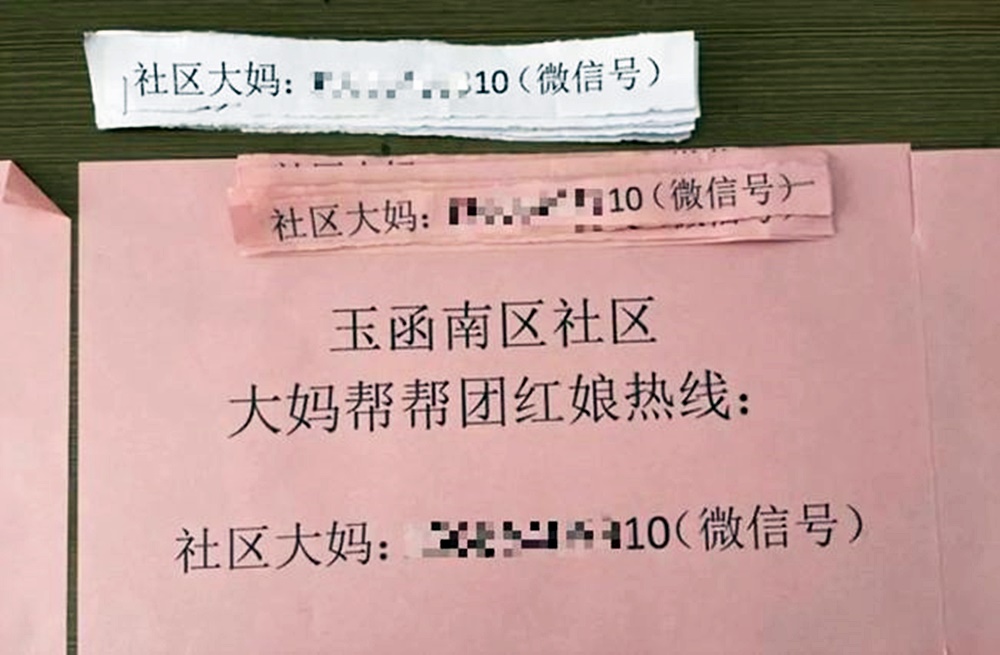 社区大妈：310（微信号）
社区大妈：10（微信号）
玉函南区社区
大妈帮帮团红娘热线：
社区大妈：10（微信号）